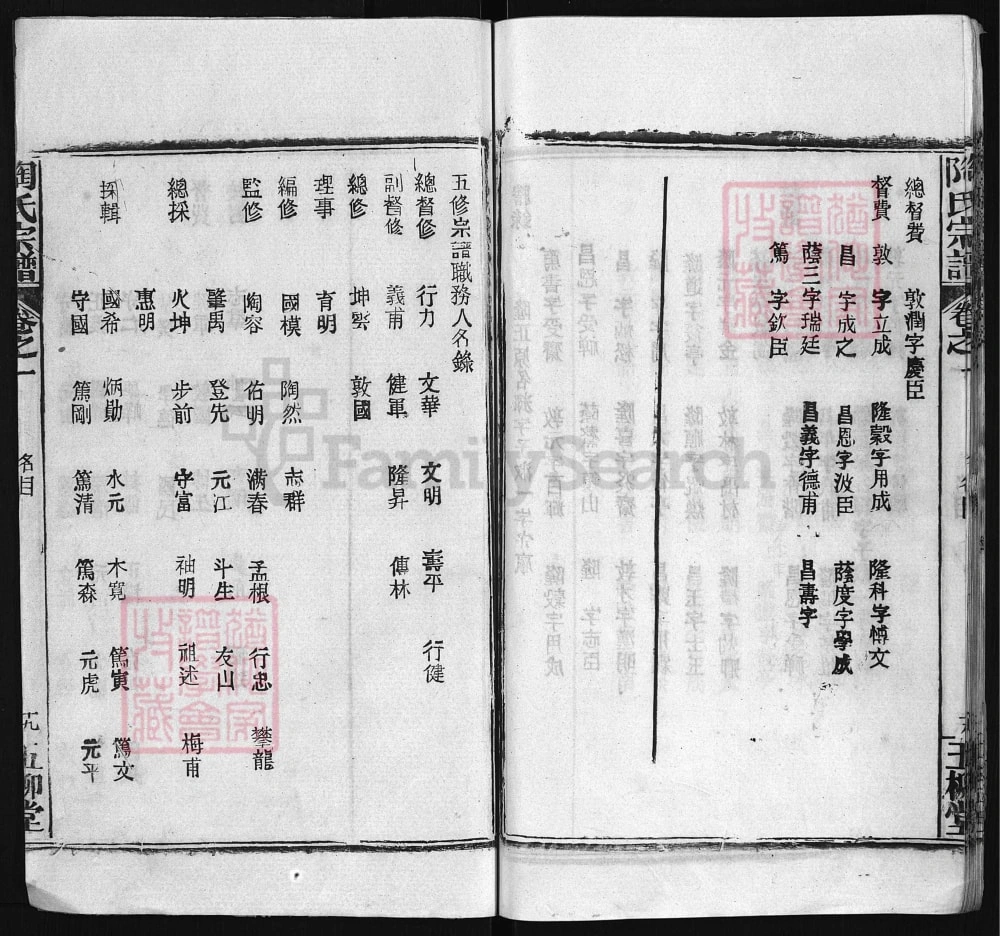 陶氏宗譜 卷之一
五柳堂
總督費 敦潤字慶臣
督費 敦 字立成 隆穀字用成 隆科字博文
昌 字成之 昌恩字波臣 蔭度字學成
蔭三字瑞廷 昌義字德甫 昌壽字
篤 字欽臣
五修宗譜職務人名錄
總督修 行力 文華 文明 壽平 行健
副督修 義甫 健軍 隆昇 傳林
總修 坤雲 敦國
理事 育明
編修 國模 陶然 志群
監修 陶容 佑明 滿春 孟根 行忠 攀龍
肇禹 登先 元江 斗生 友山
總採 火坤 步前 守富 袖明 祖述 梅甫
惠明
採輯 國希 炳勛 水元 木寬 篤寅 篤文
守國 篤剛 篤清 篤森 元虎 元平
陶氏宗譜 卷之一 名目
五柳堂
FamilySearch